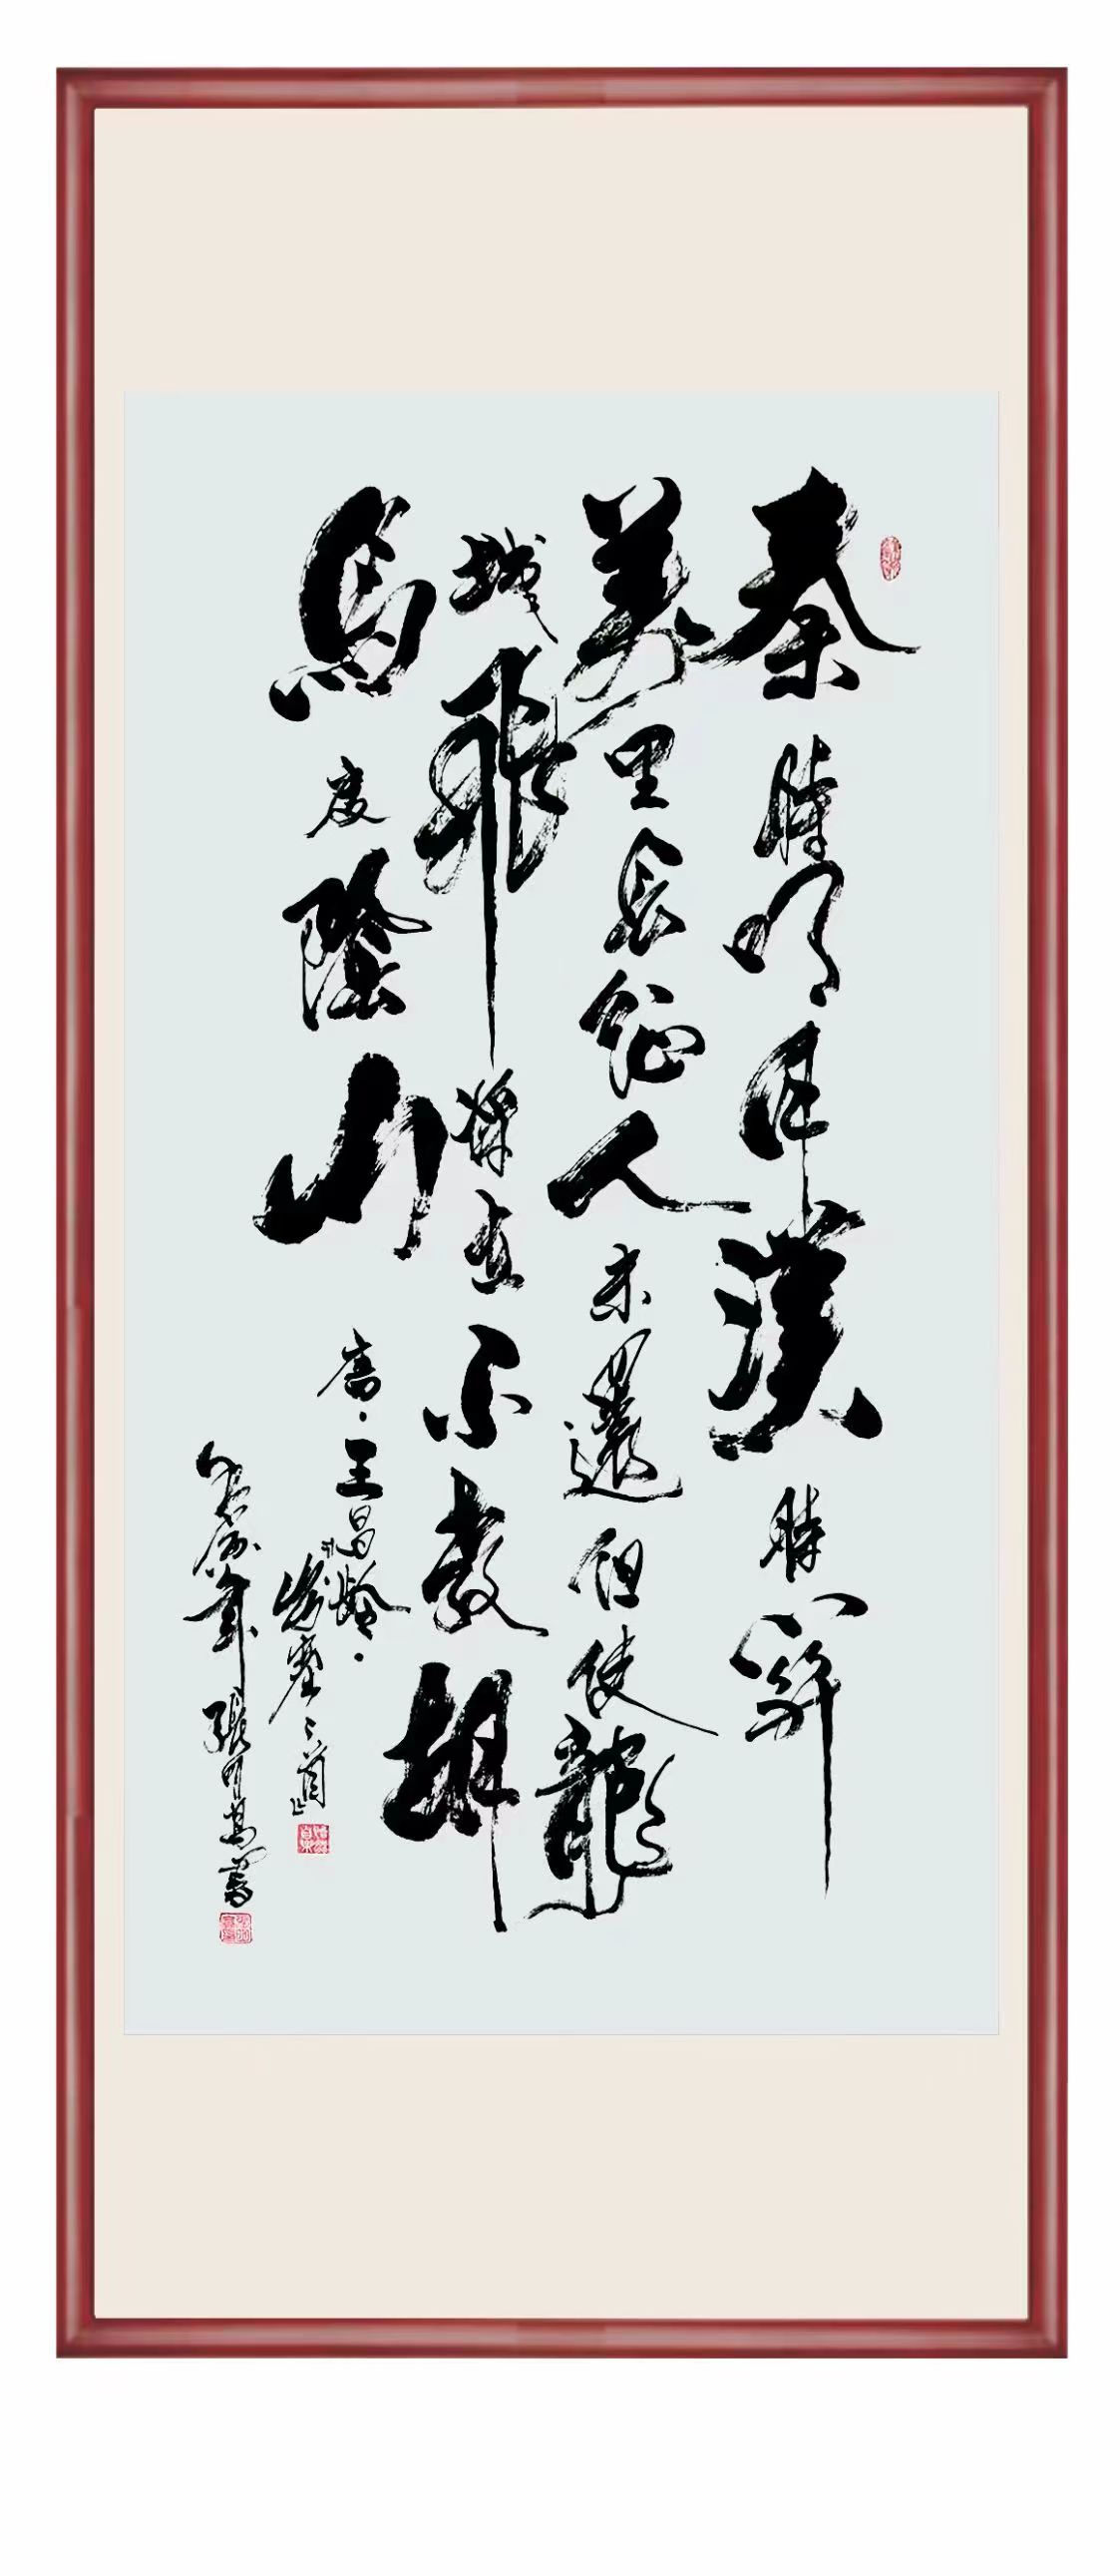 秦時明月漢時關
萬里長征人未還但使龍
城飛將在不教胡
馬度陰山
唐·王昌齡·
出塞二首
年張書